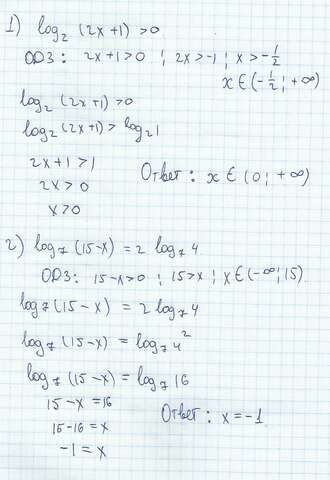 1) log₂ (2x+1) >0
ОДЗ: 2x+1>0 ; 2x>-1 ; x>-1/2
x∈(-1/2; +∞)
log₂ (2x+1) >0
log₂ (2x+1) > log₂1
2x+1 >1
2x >0
x>0
Ответ: x ∈ (0; +∞)
2) log₇ (15-x) = 2 log₇ 4
ОДЗ: 15-x>0 ; 15>x ; x∈(-∞; 15)
log₇ (15-x) = 2 log₇ 4
log₇ (15-x) = log₇ 4²
log₇ (15-x) = log₇ 16
15-x =16
15-16 = x
-1 = x
Ответ: x=-1